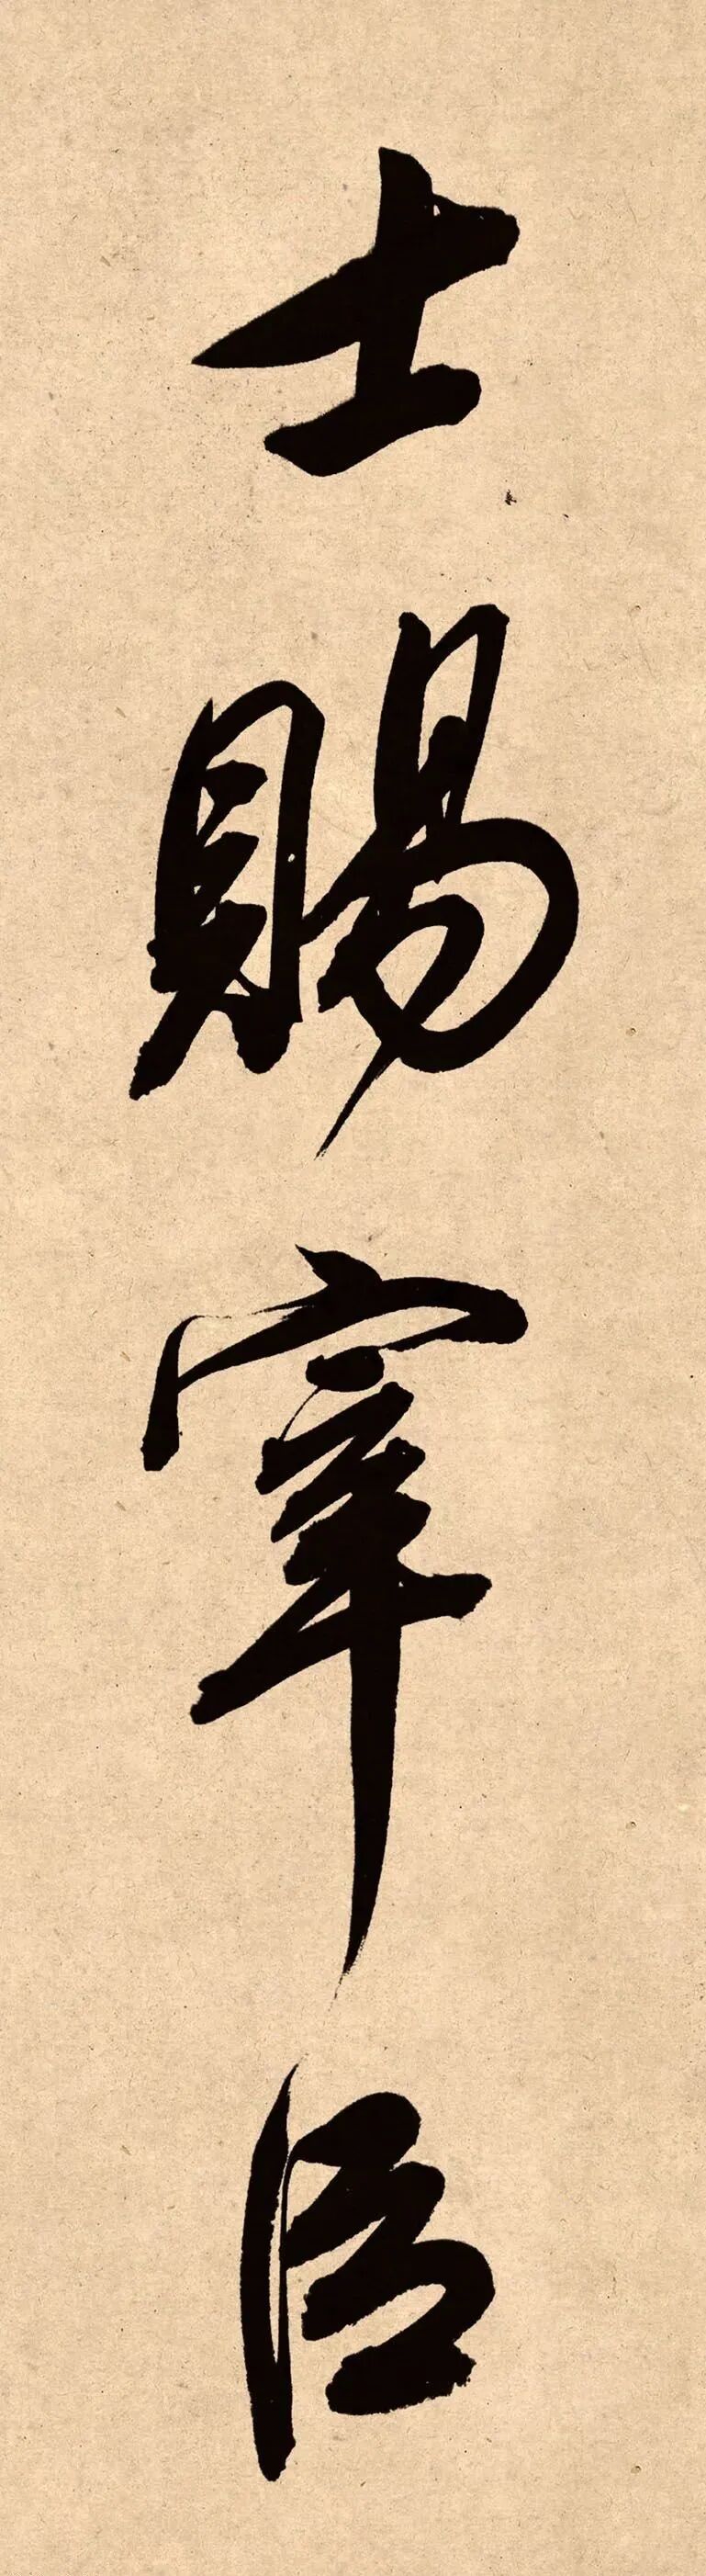 士賜宰臣